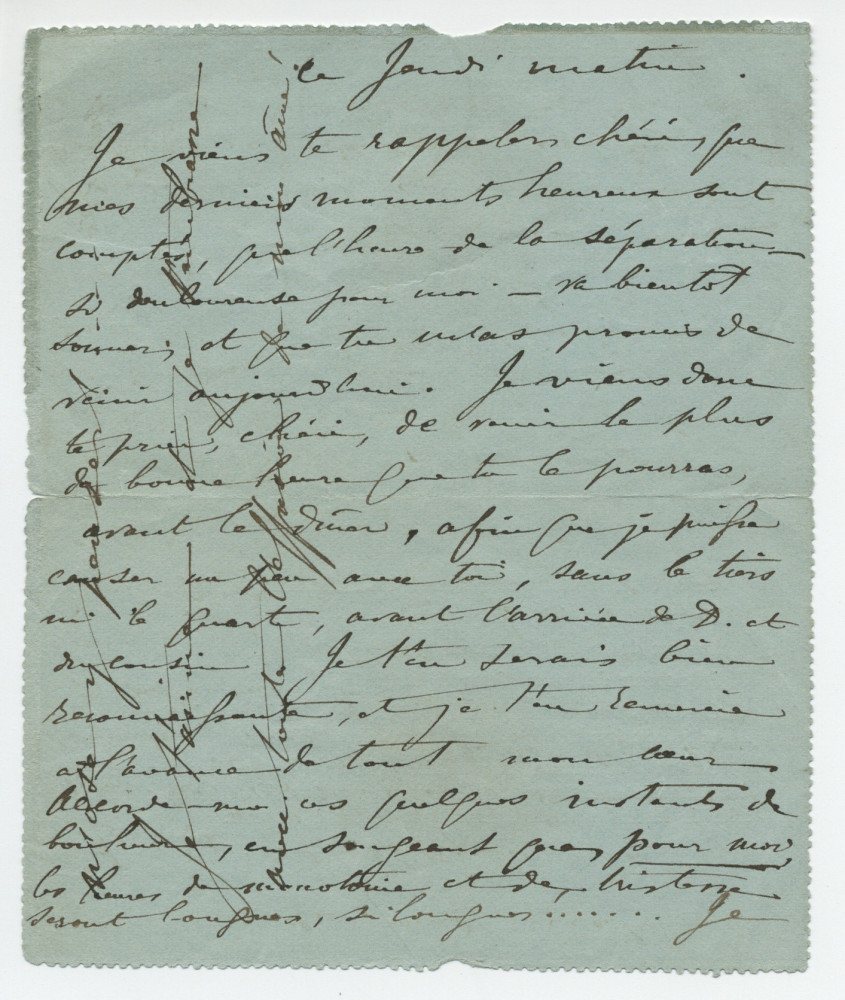 ce Jeudi matin.
Je viens te rappeler, chéri, que
mes derniers moments heureux sont
comptés, que l'heure de la séparation
si douloureuse pour moi — va bientôt
sonner, et que tu m'as promis de
venir aujourd'hui. Je viens donc
te prier, chéri, de venir le plus
de bonne heure que tu le pourras,
avant le dîner, afin que je puisse
causer un peu avec toi, sans le tiers
ni le quart, avant l'arrivée de D. et
du cousin. Je t'en serais bien
reconnaissante, et je t'en remercie
à l'avance de tout mon cœur
Accorde-moi ces quelques instants de
bonheur, en songeant que, pour moi
les heures de monotonie et de tristesse
seront longues, si longues....... Je
avec toute
mon aimé